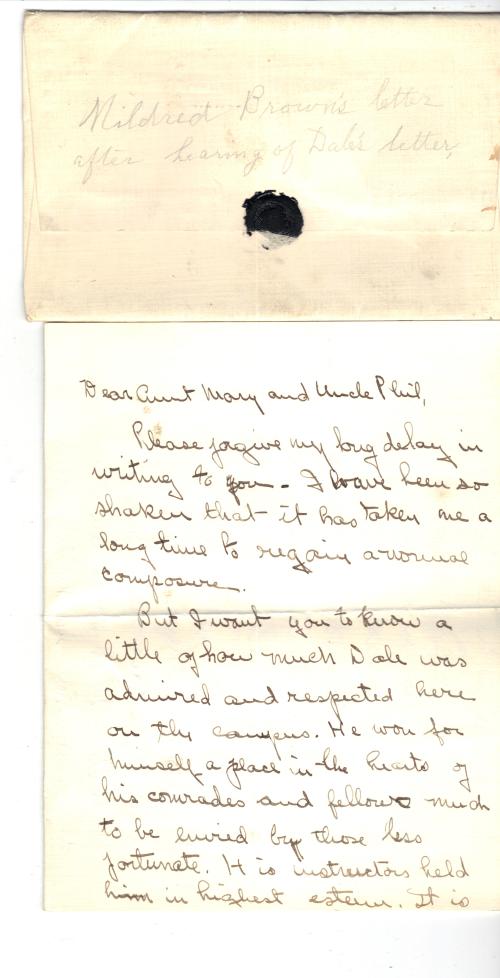 Mildred Brown's letter
after hearing of Dale's letter,
Dear Aunt Mary and Uncle Phil,
Please forgive my long delay in
writing to you - I have been so
shaken that it has taken me a
long time to regain a normal
composure.
But I want you to know a
little of how much Dale was
admired and respected here
on the campus. He won for
himself a place in the hearts of
his comrades and fellows much
to be envied by those less
fortunate. His instructors held
him in highest esteem. It is